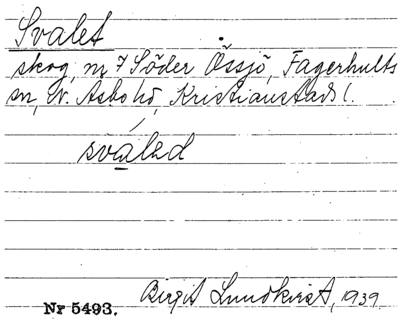 Svalet
skog, m 7 Söder Össjö, Fagerhults
sn, N. Åsbo hd, Kristianstads l.
svaləd
Birgit Lundkvist, 1939.
Nr 5493.